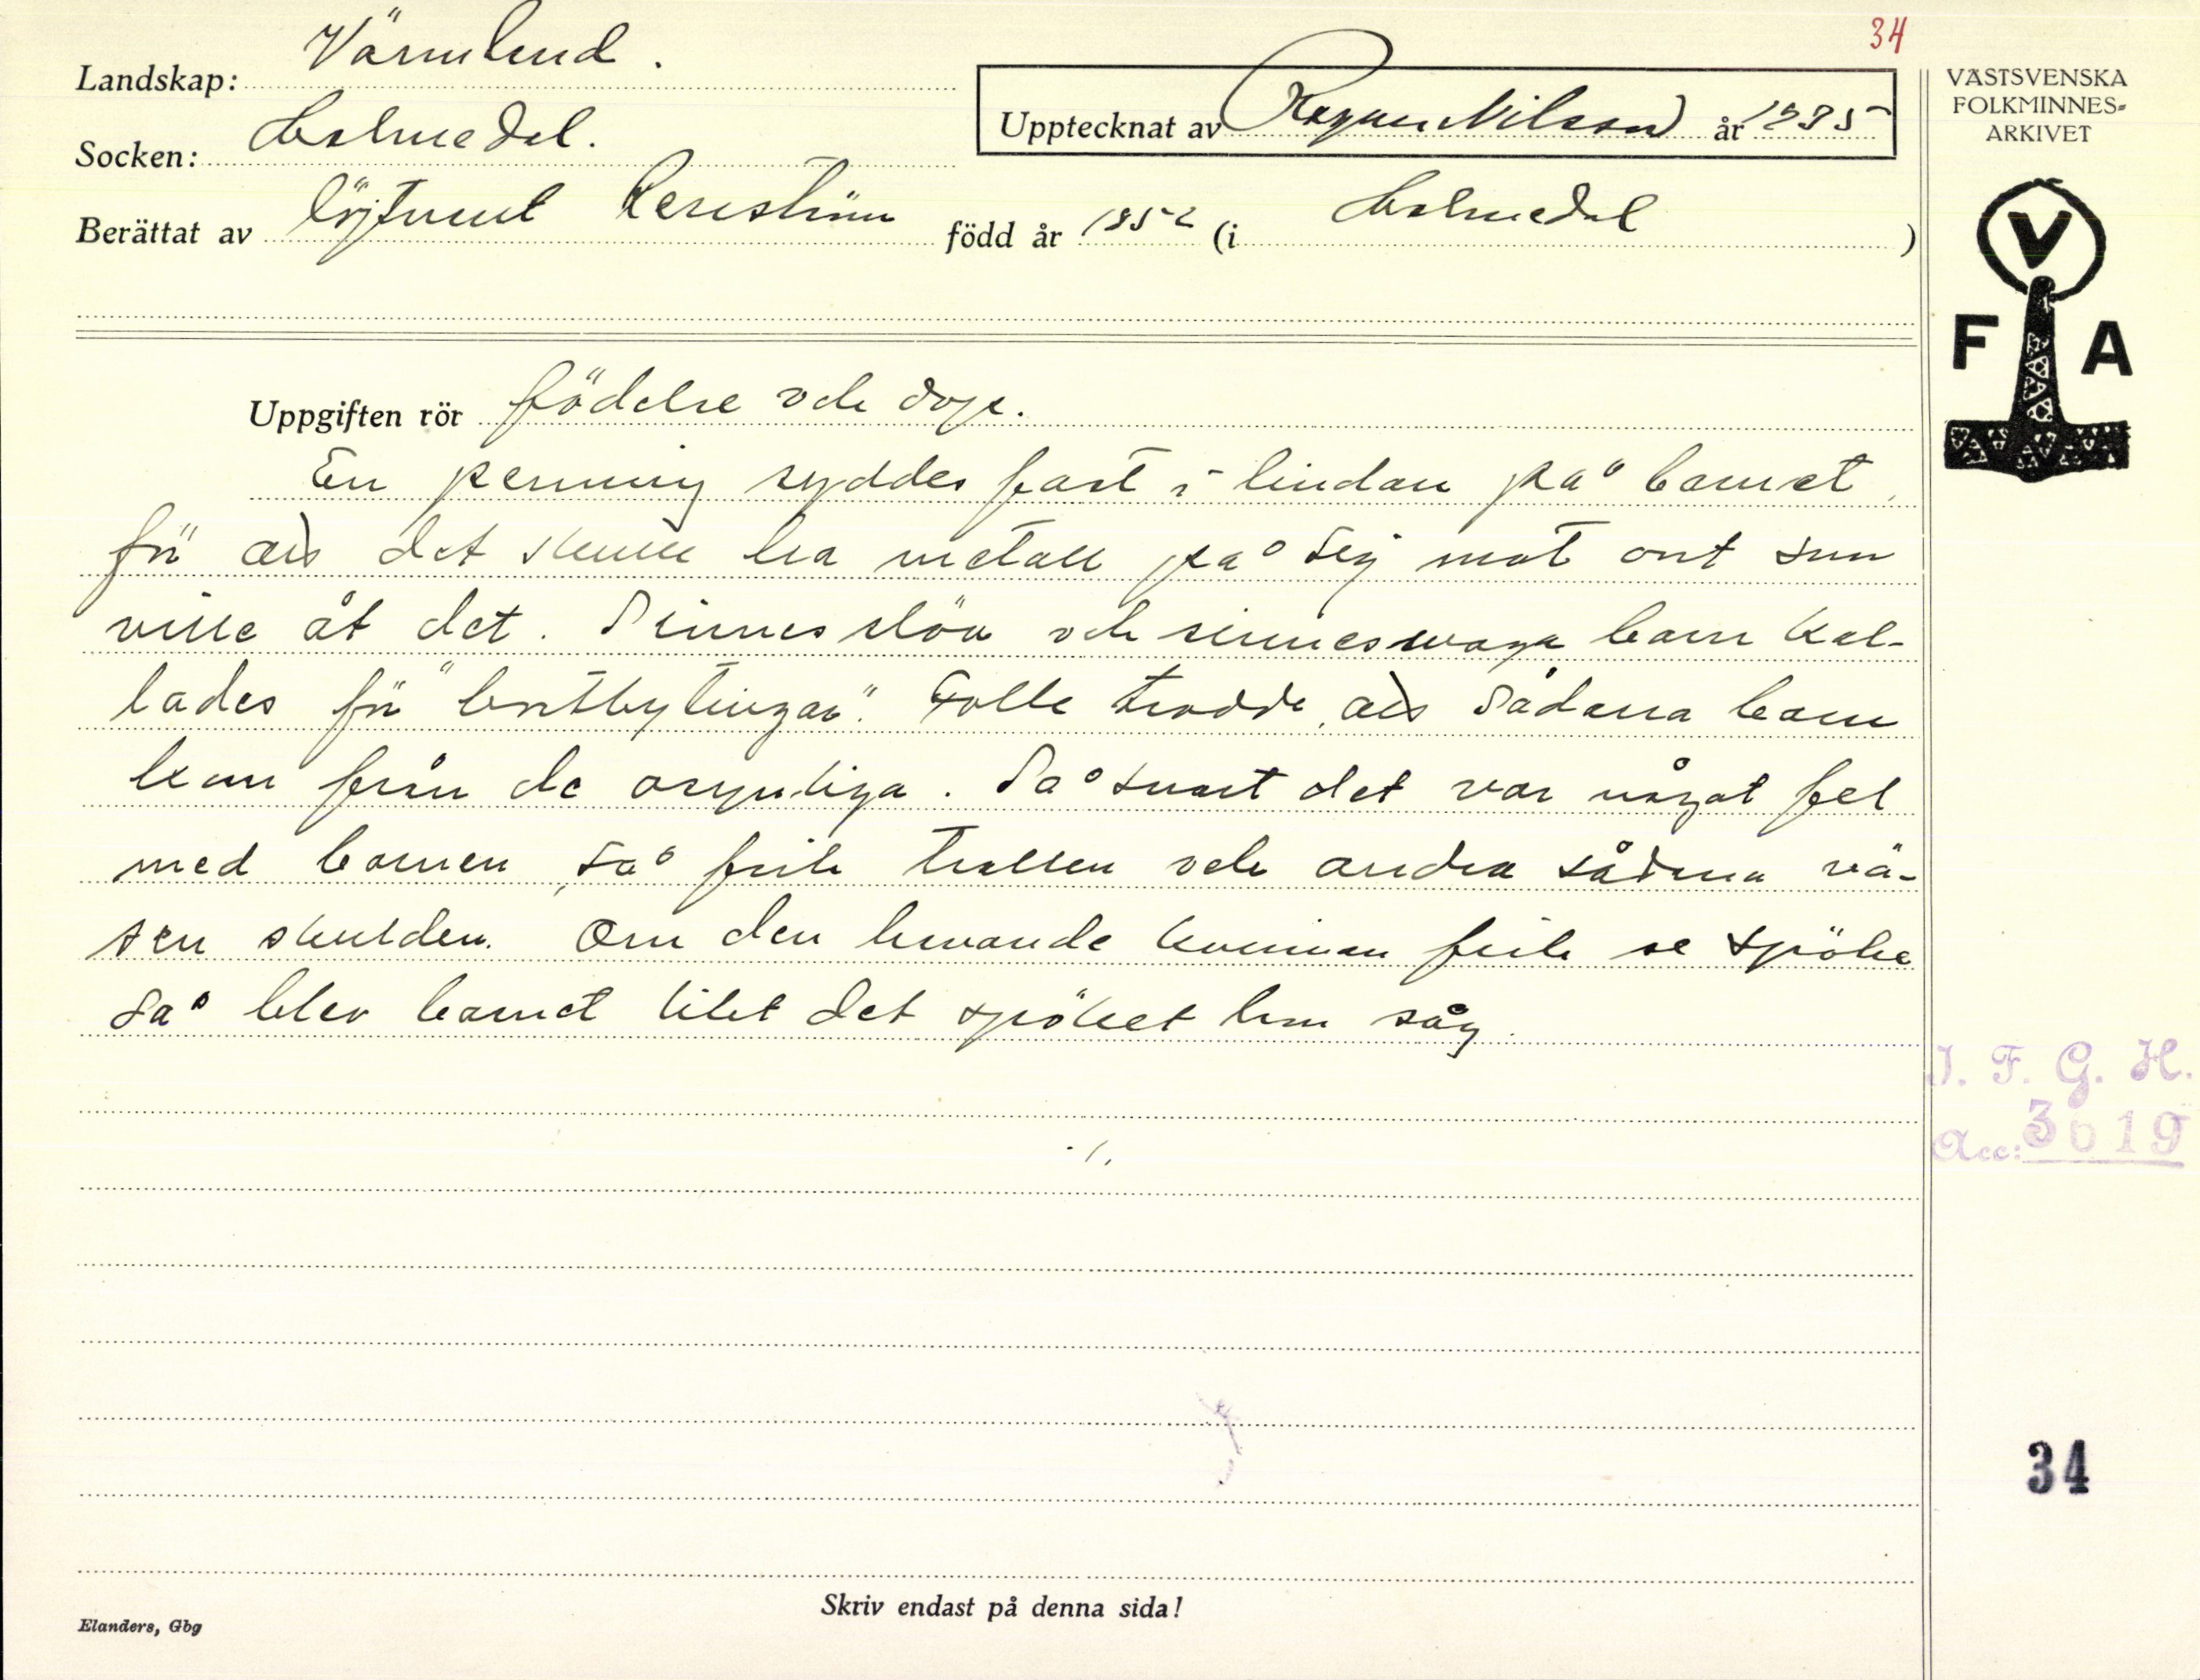 34
Landskap: Värmland.
Socken: Holmedal.
Upptecknat av Ragnar Nilsson år 1935
VÄSTSVENSKA
FOLKMINNES-
ARKIVET
Berättat av löjtnant född år 1852 (i Holmedal)
V
F A
Uppgiften rör födelse och dop.
En penning syddes fast i lindan på barnet,
för att det skulle ha metall på sej mot ont som
ville åt det. Sinnesslöa och sinnessvaga barn kal-
lades för "bortbytingar". Folk trodde, att sådana barn
kom från de osynliga. Så snart det var något fel
med barnen, så fick trollen och andra sådana vä-
sen skulden. Om den havande kvinnan fick se spöke
så blev barnet likt det spöket hon såg.
I. F. G. H.
Acc: 3619
./.
34
Skriv endast på denna sida!
Elanders, Gbg